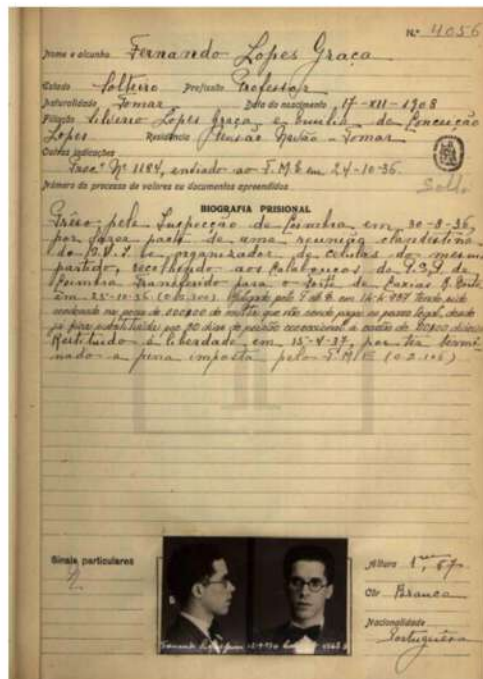 Nº 4056
Nome e alcunha Fernando Lopes Graça
Estado Solteiro Profissão Professor
Naturalidade Tomar Data do nascimento 17-XII-1908
Filiação Silverio Lopes Graça e Emilia da Conceição
Lopes Residência Pensão Nabão - Tomar
Outras indicações
Procº Nº 1184, entrado ao T.M.E. em 24-10-36.
Número do processo de valores ou documentos apreendidos
BIOGRAFIA PRISIONAL
Prêso pela Inspecção de Coimbra em 30-8-36,
por fazer parte de uma reunião clandestina
do e organizador de celulas do mesmo
partido, recolhendo aos Calabouços da
Coimbra Transferido para o Forte de Caxias
em 25-10-36 Julgado pelo T.M.E. em tendo sido
condenado na pena de de multa, que não sendo paga no prazo legal, desde
já fica substituida por 20 dias de prisão correccional á razão de
Restituido á liberdade em 15-4-37, por ter termi-
nado a pena imposta pelo T.M.E.
Sinais particulares
Altura 1,67
Côr Branca
Nacionalidade
Portuguêsa